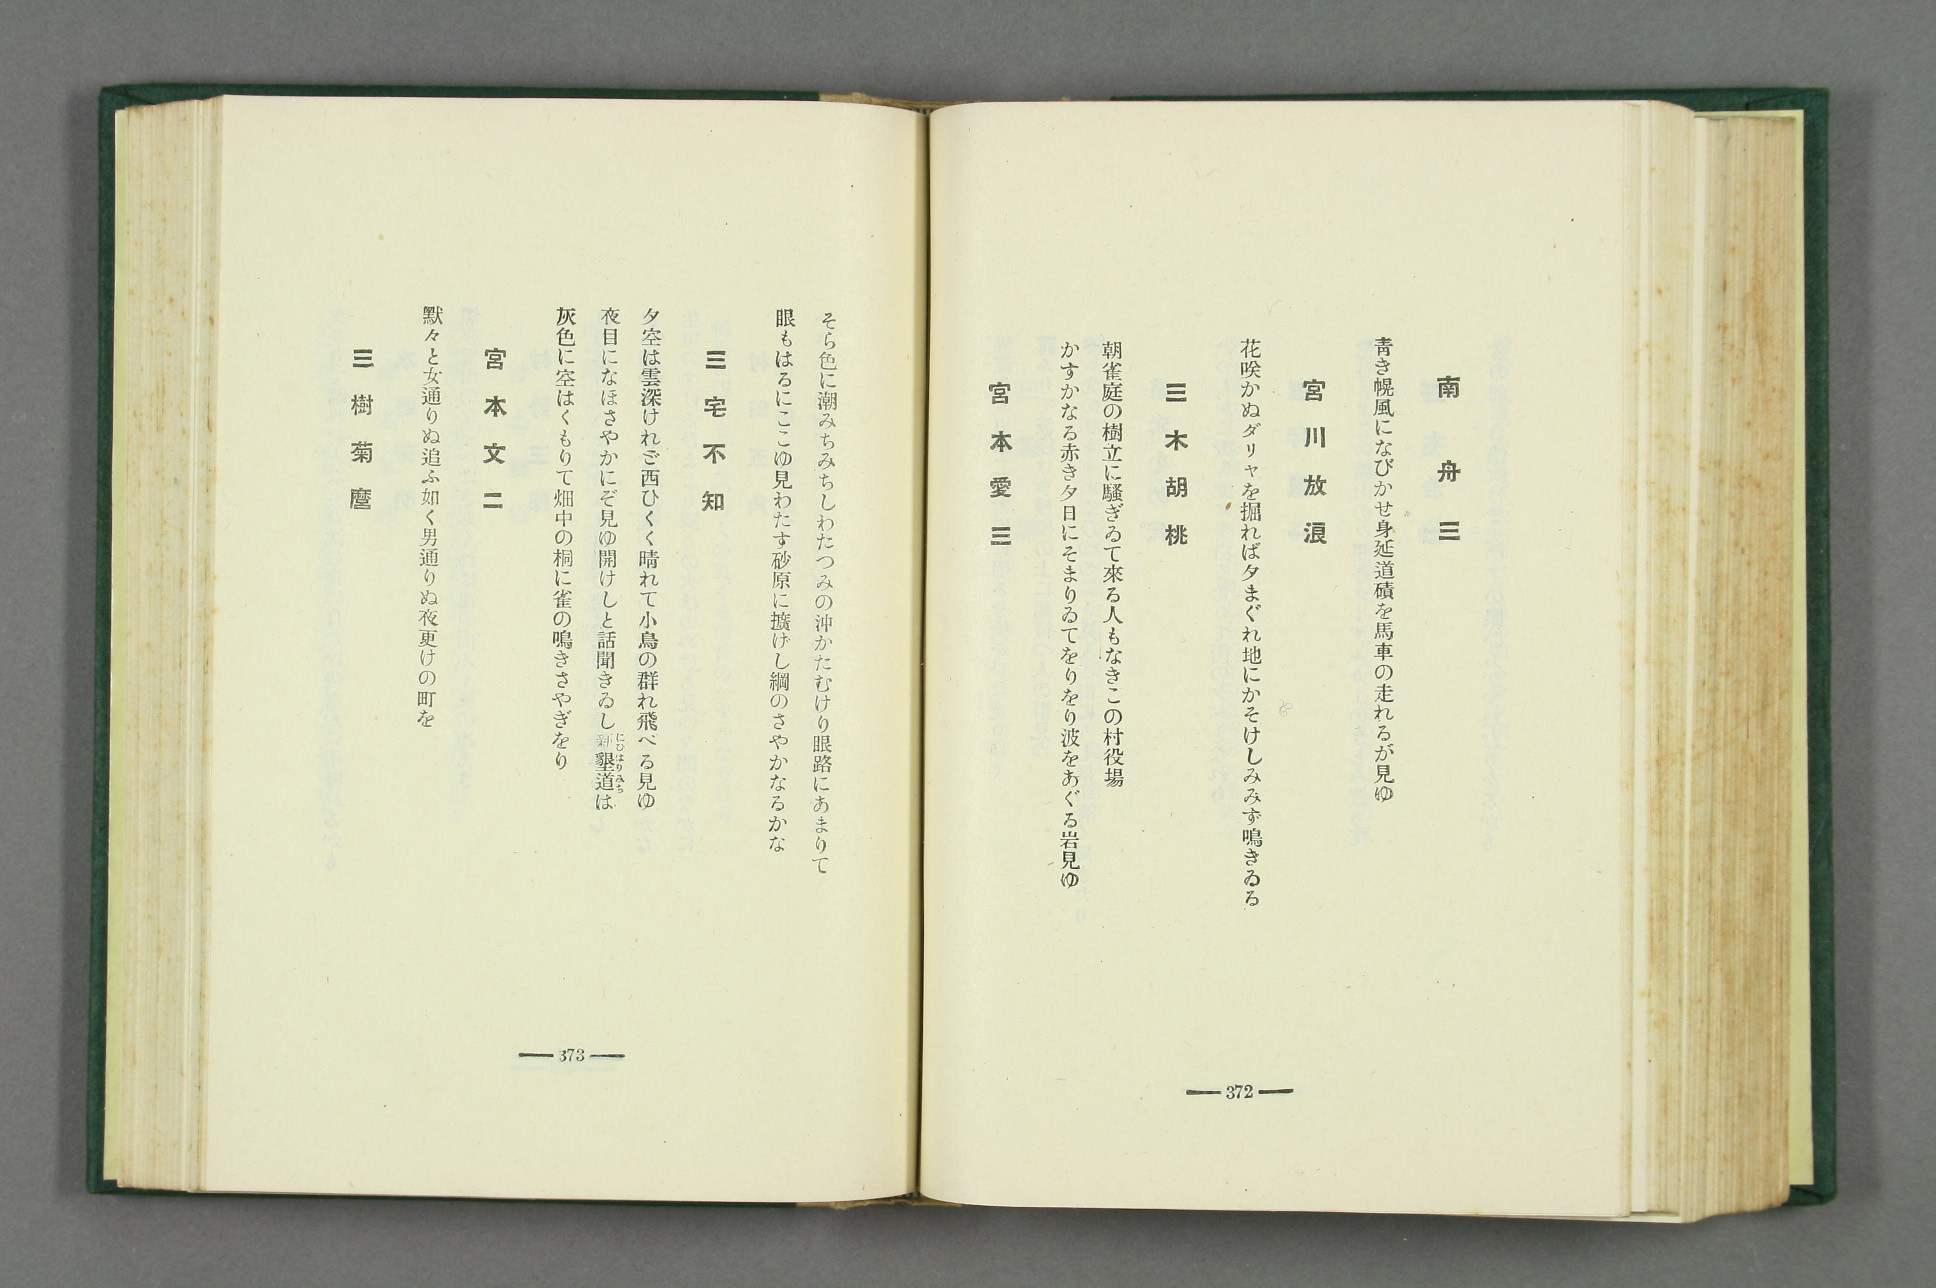 南舟三
青き幌風になびかせ身延道磧を馬車の走れるが見ゆ
宮川放浪
花咲かぬダリヤを掘れば夕まぐれ地にかそけしみみず鳴きゐる
三木胡桃
朝雀庭の樹立に騒ぎゐて來る人もなきこの村役場
かすかなる赤き夕日にそまりゐてをりをり波をあぐる岩見ゆ
宮本愛三
372
そら色に潮みちみちしわたつみの沖かたむけり眼路にあまりて
眼もはるにここゆ見わたす砂原に擴げし綱のさやかなるかな
三宅不知
夕空は雲深けれど西ひくく晴れて小鳥の群れ飛べる見ゆ
夜目になほさやかにぞ見ゆ開けしと話聞きゐし新墾道は
にひはりみち
灰色に空はくもりて畑中の桐に雀の鳴きさやぎをり
宮本文二
默々と女通りぬ追ふ如く男通りぬ夜更けの町を
三樹菊麿
373